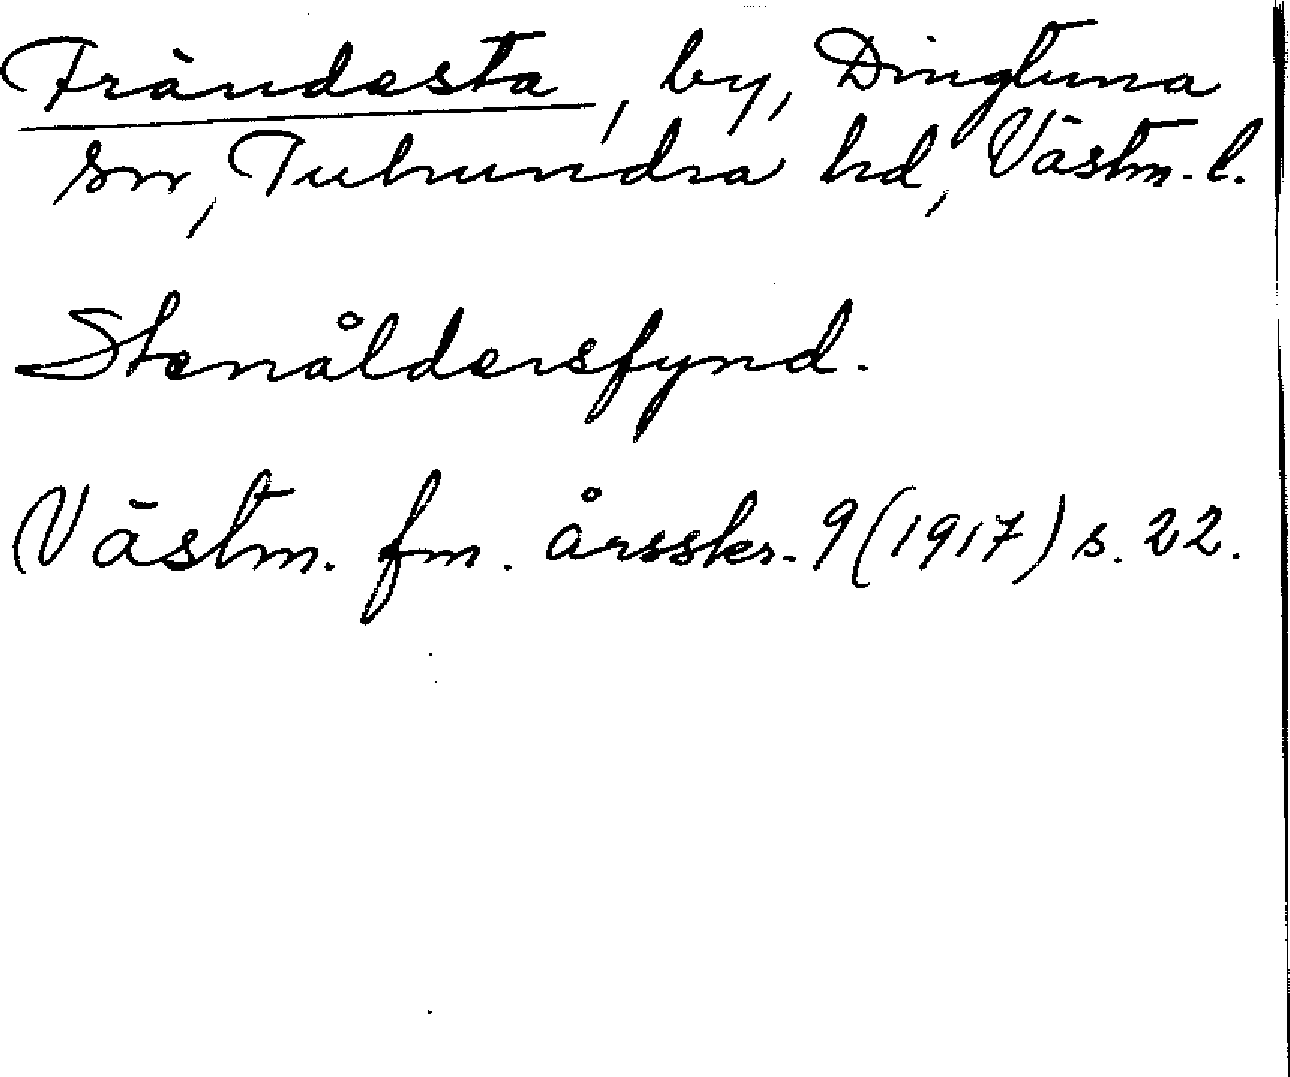 Frändesta, by, Dingtuna
sn, Tuhundra hd, Västm. l.
Stenåldersfynd.
Västm. fm. årsskr. 9 (1917) s. 22.